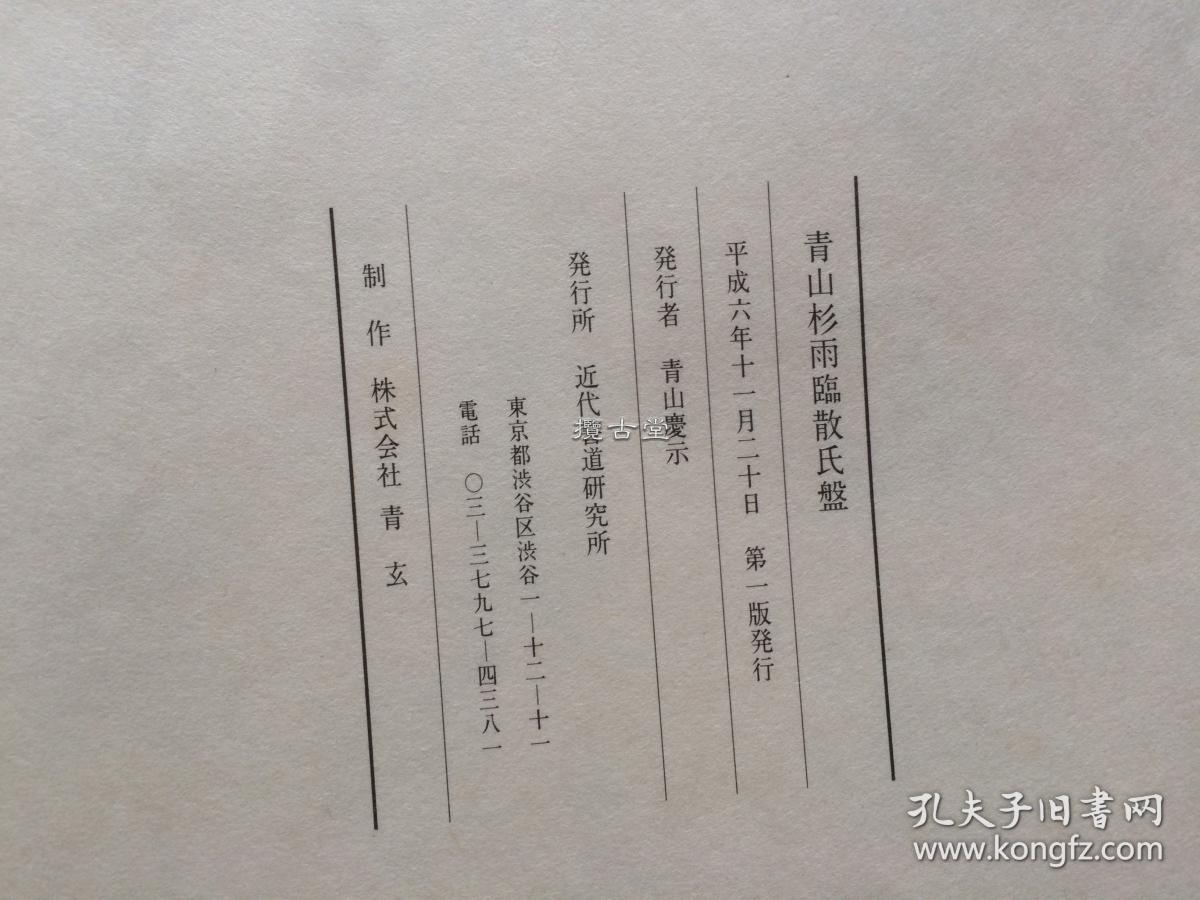 青山杉雨臨散氏盤
平成六年十一月二十日　第一版発行
発行者　青山慶示
発行所　近代書道研究所
東京都渋谷区渋谷一―十二―十一
電話　〇三―三七九七―四三八一
制作　株式会社　青玄
攬古堂
孔夫子旧书网
www.kongfz.com